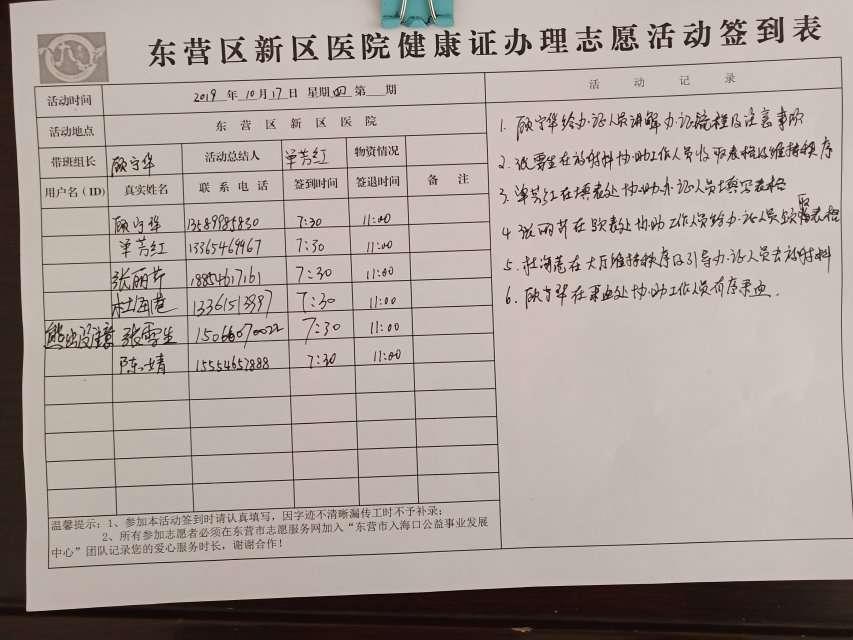 东营区新区医院健康证办理志愿活动签到表
活动时间 2019 年 10 月 17 日 星期 四 第 期
活动地点 东营区新区医院
带班组长 顾守华 活动总结人 单芳红 物资情况
用户名（ID） 真实姓名 联系电话 签到时间 签退时间 备注
顾守华 13589985830 7:30 11:00
单芳红 13365469967 7:30 11:00
张丽芹 18854617161 7:30 11:00
杜海港 7:30 11:00
熊出没注意 张雪生 15066070022 7:30 11:00
陈婧 15554657888 7:30 11:00
温馨提示：1、参加本活动签到时请认真填写，因字迹不清晰漏传工时不予补录；
2、所有参加志愿者必须在东营市志愿服务网加入“东营市入海口公益事业发展
中心”团队记录您的爱心服务时长，谢谢合作！
活动记录
1. 顾守华给办证人员讲解办证流程及注意事项
2. 张雪生在放材料协助工作人员收取表格及维持秩序
3. 单芳红在填表处协助办证人员填写表格
4. 张丽芹在 表处协助工作人员给办证人员 表格
5. 杜海港在大厅维持秩序及引导办证人员去放材料
6. 顾守华在采血处协助工作人员有序采血.